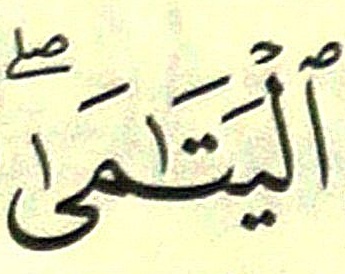 ٱلْيَتَٰمَىٰۖ